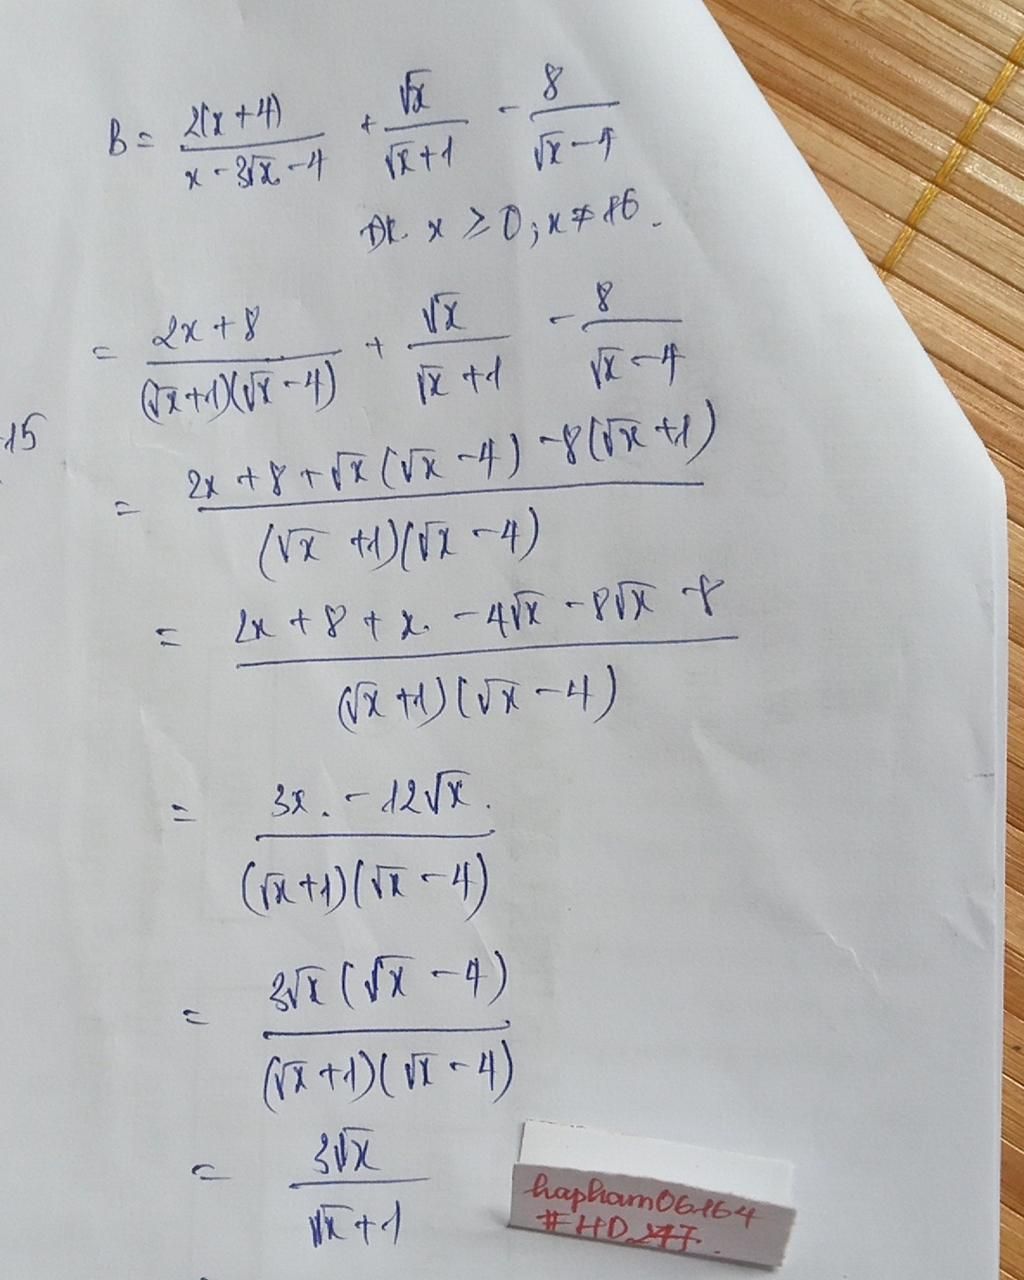 B = \frac{2(x+4)}{x-3\sqrt{x}-4} + \frac{\sqrt{x}}{\sqrt{x}+1} - \frac{8}{\sqrt{x}-4}
ĐK. x ≥ 0; x ≠ 16.
= \frac{2x+8}{(\sqrt{x}+1)(\sqrt{x}-4)} + \frac{\sqrt{x}}{\sqrt{x}+1} - \frac{8}{\sqrt{x}-4}
-15
= \frac{2x+8+\sqrt{x}(\sqrt{x}-4)-8(\sqrt{x}+1)}{(\sqrt{x}+1)(\sqrt{x}-4)}
= \frac{2x+8+x-4\sqrt{x}-8\sqrt{x}-8}{(\sqrt{x}+1)(\sqrt{x}-4)}
= \frac{3x-12\sqrt{x}}{(\sqrt{x}+1)(\sqrt{x}-4)}
= \frac{3\sqrt{x}(\sqrt{x}-4)}{(\sqrt{x}+1)(\sqrt{x}-4)}
= \frac{3\sqrt{x}}{\sqrt{x}+1}
hapham06164